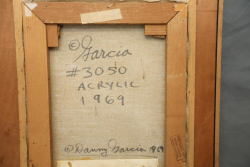 © Garcia
#3050
ACRYLIC
1969
© Danny Garcia 1969